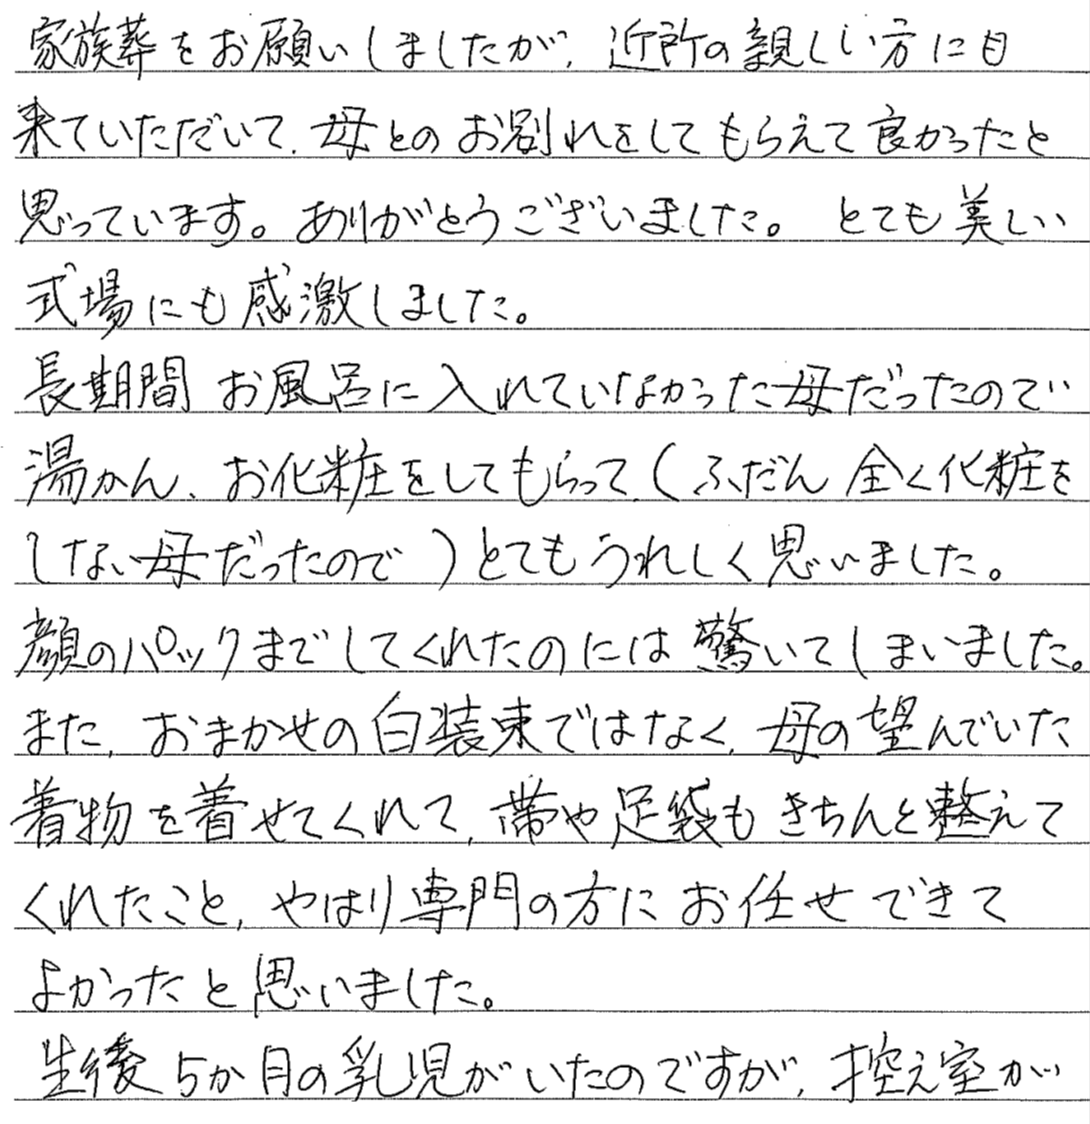 家族葬をお願いしましたが、近所の親しい方に目
来ていただいて、母とのお別れをしてもらえて良かったと
思っています。ありがとうございました。 とても美しい
式場にも感激しました。
長期間 お風呂に入れていなかった母だったので
湯かん、お化粧をしてもらって、(ふだん 全く化粧を
しない母だったので)とてもうれしく思いました。
顔のパックまでしてくれたのには驚いてしまいました。
また、おまかせの白装束ではなく、母の望んでいた
着物を着せてくれて、帯や足袋もきちんと整えて
くれたこと、やはり専門の方にお任せできて
よかったと思いました。
生後5か月の乳児がいたのですが、控え室が